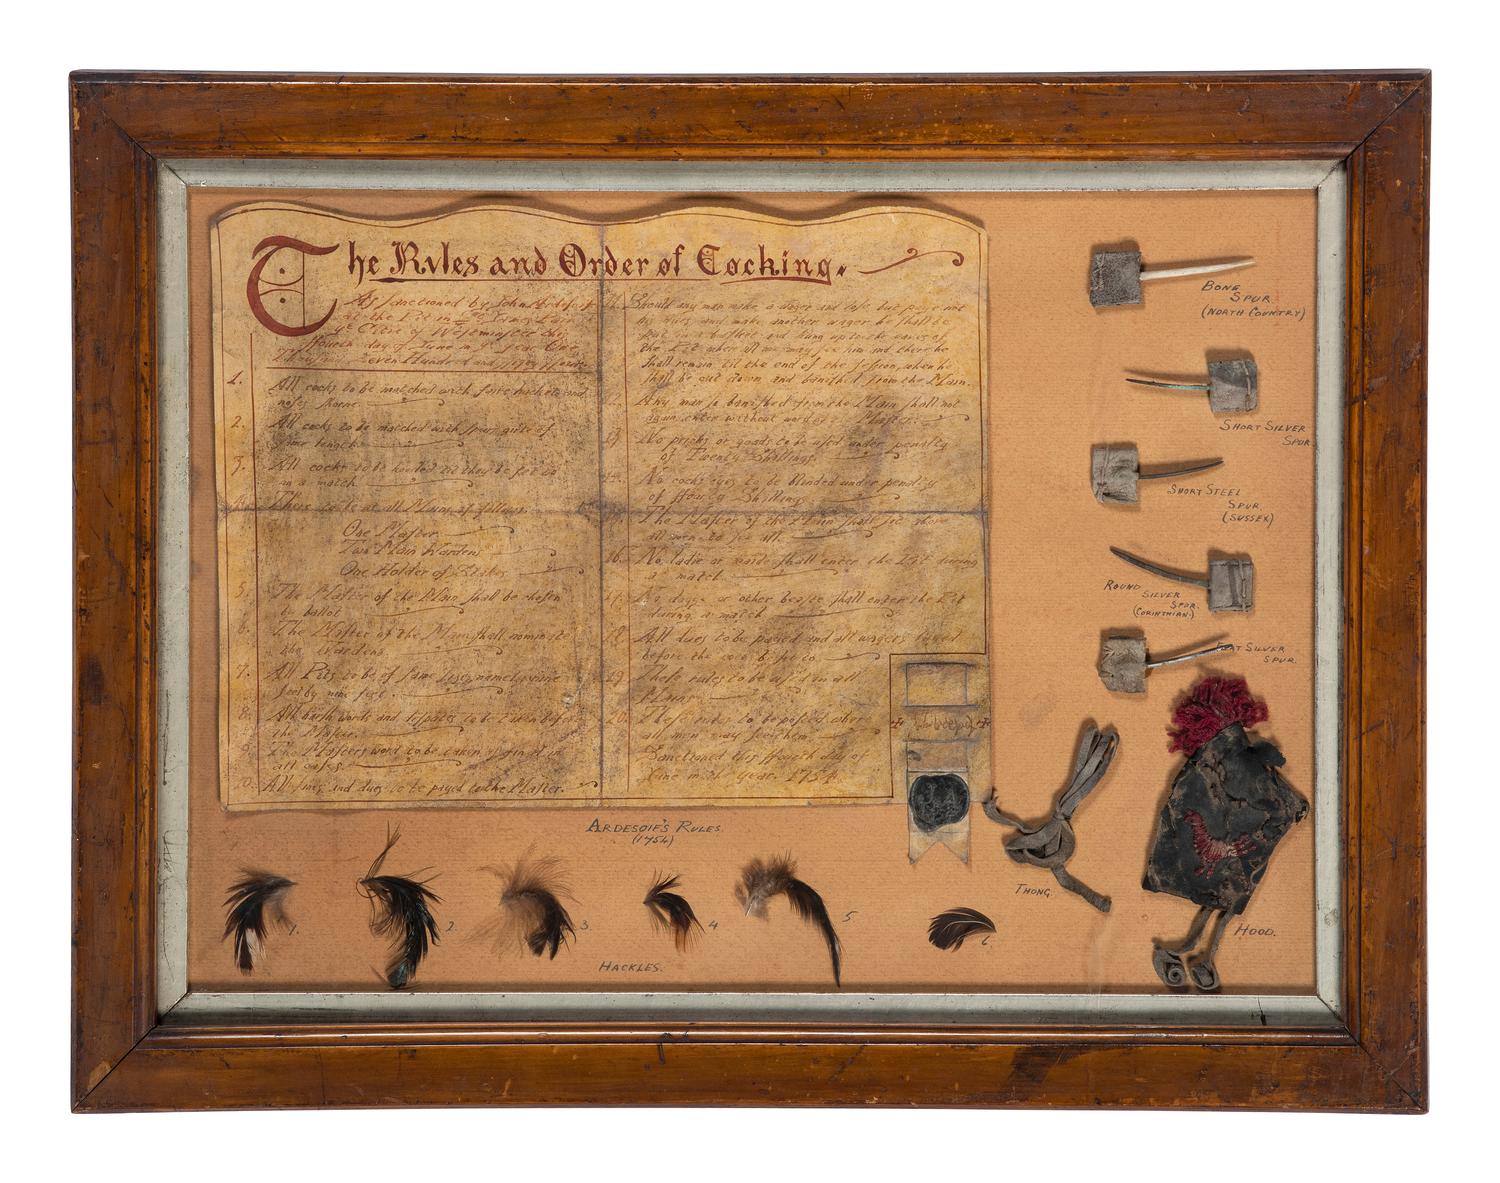 The Rvles and Order of Cocking.
As sanctioned by John Ardesoif
at the Pit in
ye Citie of Westminster this
ffourth day of June in ye year One
Thousand Seven Hundred and ffifty ffour
1. All cocks to be matched with faire and
2. All cocks to be matched with spurs of
same length
3. All cocks to be hooded til they be set to
in a match
4. There to be at all Mains as follows
One Master
Two Main Wardens
One Holder of Stakes
5. The Master of the Main shall be chosen
by ballot
6. The Master of the Main shall nominate
the Wardens
7. All Pits to be of same size, namely nine
feet by nine feet.
8. All harsh words and disputes to be taken before
the Master.
9. The Masters word to be taken as final in
all cases.
10. All fines and dues to be payed to the Master.
11. Should any man make a wager and lose but paye not
his dues and make another wager he shall be
put in a and hung up to the eaves of
the Pit where all men may see him and there he
shall remain til the end of the session, when he
shall be cut down and banished from the Main.
12. Any man so banished from the Main shall not
again enter without word of Master.
13. No pricks or goads to be used under penalty
of Twenty Shillings.
14. No cocks eyes to be blinded under penalty
of ffourty Shillings
15. The Master of the Main shall sit above
all men to see all.
16. No ladie or maide shall enter the Pit during
a match
17. No dogge or other beaste shall enter the Pit
during a match
18. All dues to be payed and all wagers layed
before the cocks be set to
19. These rules to be used in all
Mains
20. These rules to be posted wher
all men may see them.
Sanctioned this ffourth day of
June in ye year. 1754.
Ardesoif's Rules.
(1754)
Bone
Spur
(North Country)
Short Silver
Spur.
Short Steel
Spur.
(Sussex)
Round
Silver
Spur.
(Corinthian.)
Silver
Spur.
Thong.
Hood.
1.
2.
3
4
5
6.
Hackles.